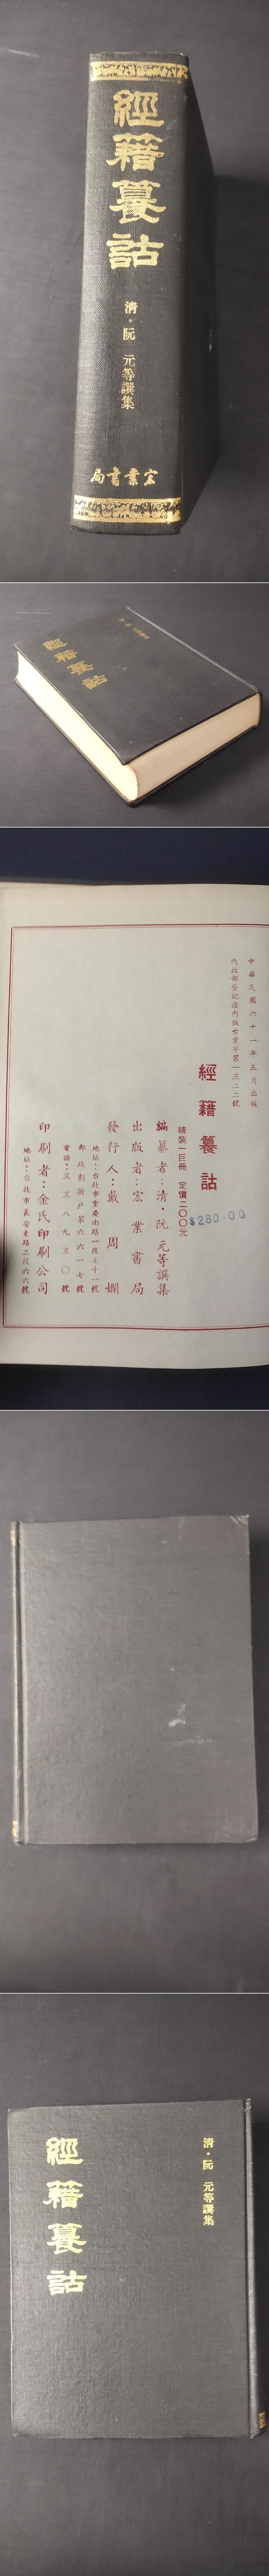 經籍籑詁
清・阮 元等譔集
宏業書局
經籍籑詁
中華民國六十一年五月出版
內政部登記證內版台業字第一三二二號
經籍籑詁
精裝一巨冊 定價二〇〇元
$280.00
編纂者：清・阮元等譔集
出版者：宏業書局
發行人：戴周嫻
地址：台北市重慶南路一段七十一號
郵政劃撥戶第六六一七號
電話：三三八九三〇號
印刷者：金氏印刷公司
地址：台北市長安東路二段六六號
清・阮 元等譔集
經籍籑詁